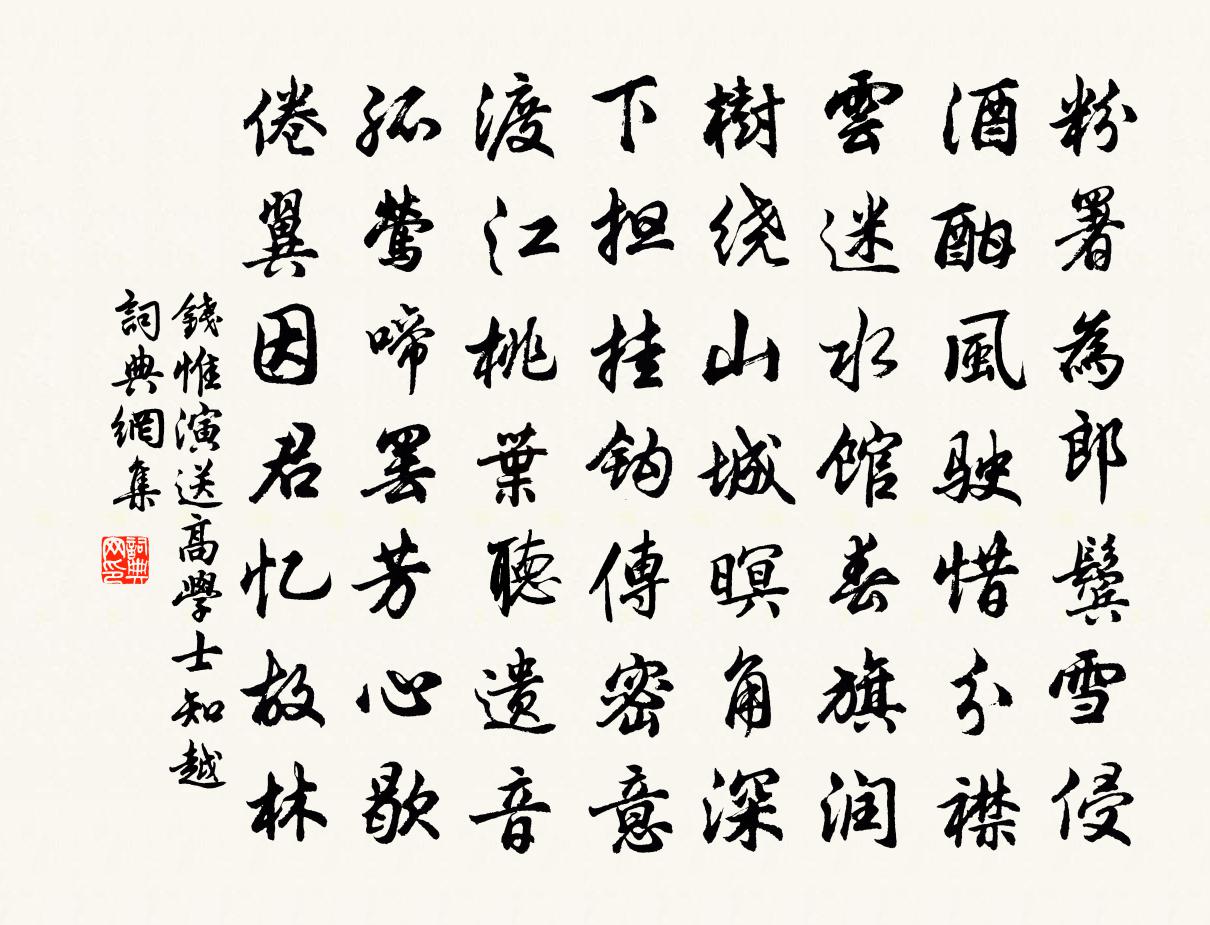 粉署為郎鬓雪侵
酒酣風駛惜分襟
雲迷水館春旗润
樹绕山城暝角深
下担挂鈎傳密意
渡江桃葉聽遗音
孤鶯啼罢芳心歇
倦翼因君忆故林
錢惟演送高學士知越
詞典網集
詞典网印